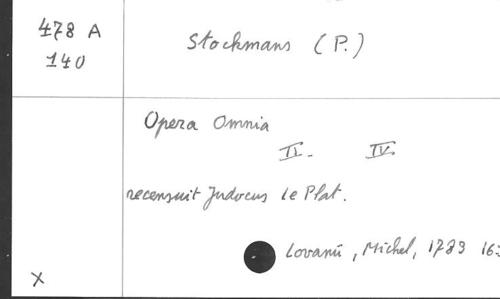 478 A
140
Stockmans (P.)
Opera Omnia
II. IV
recensuit Judocus Le Plat.
Lovanii, Michel, 1783 16:
X